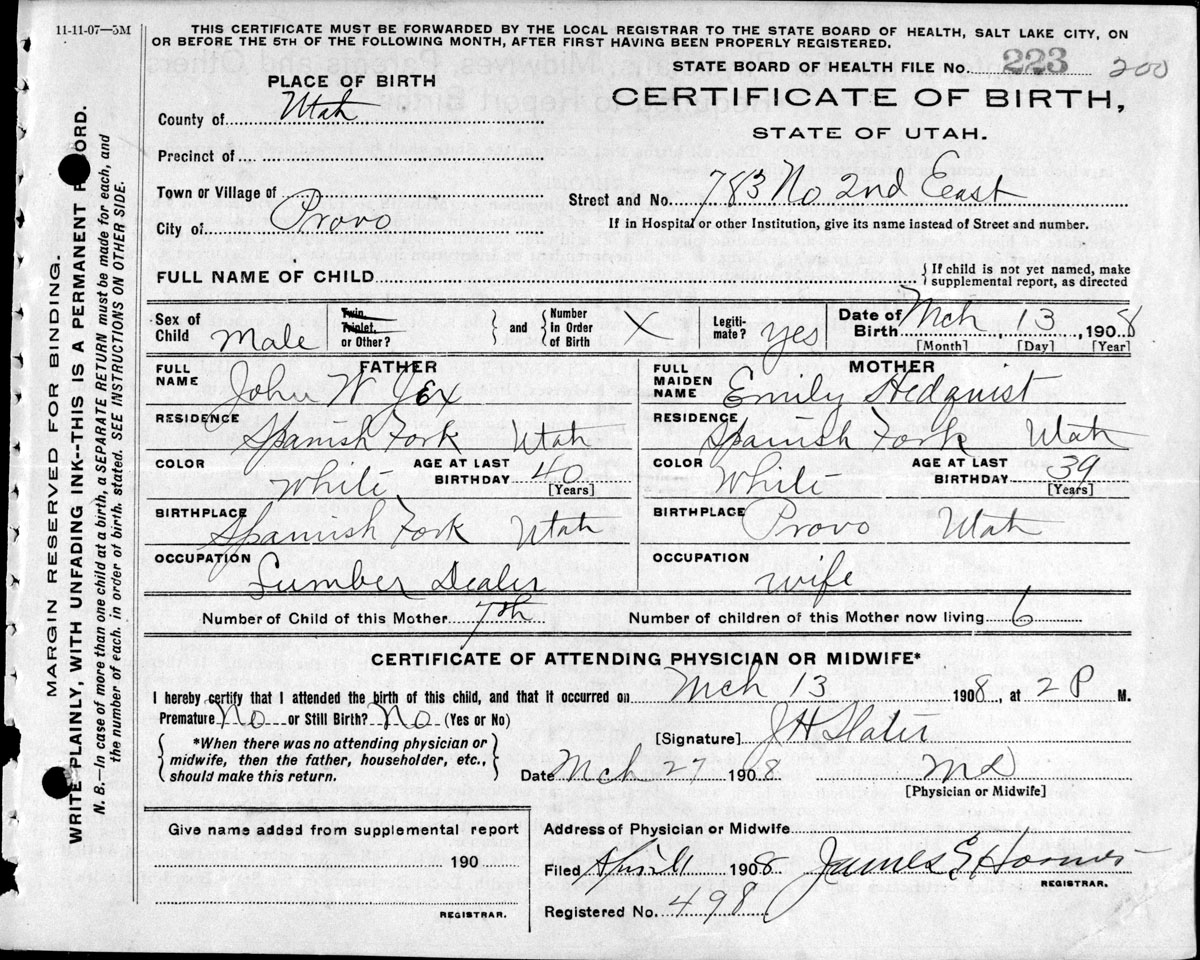 11-11-07—5M
THIS CERTIFICATE MUST BE FORWARDED BY THE LOCAL REGISTRAR TO THE STATE BOARD OF HEALTH, SALT LAKE CITY, ON
OR BEFORE THE 5TH OF THE FOLLOWING MONTH, AFTER FIRST HAVING BEEN PROPERLY REGISTERED.
STATE BOARD OF HEALTH FILE No. 223 200
PLACE OF BIRTH
CERTIFICATE OF BIRTH,
STATE OF UTAH.
County of Utah
Precinct of
Town or Village of
City of Provo
Street and No. 783 No 2nd Eeast
If in Hospital or other Institution, give its name instead of Street and number.
FULL NAME OF CHILD
{ If child is not yet named, make
supplemental report, as directed
Sex of Child Male
Twin, Triplet, or Other? } and { Number In Order of Birth X
Legiti-mate? yes
Date of Birth Mch 13, 1908
[Month] [Day] [Year]
FATHER
FULL NAME John W Jex
RESIDENCE Spanish Fork Utah
COLOR White AGE AT LAST BIRTHDAY 40 [Years]
BIRTHPLACE Spanish Fork Utah
OCCUPATION Lumber Dealer
MOTHER
FULL MAIDEN NAME Emily Hedquist
RESIDENCE Spanish Fork Utah
COLOR White AGE AT LAST BIRTHDAY 39 [Years]
BIRTHPLACE Provo Utah
OCCUPATION Wife
Number of Child of this Mother 7th Number of children of this Mother now living 6
CERTIFICATE OF ATTENDING PHYSICIAN OR MIDWIFE*
I hereby certify that I attended the birth of this child, and that it occurred on Mch 13 1908, at 2 P M.
Premature No or Still Birth? No (Yes or No)
{ *When there was no attending physician or
midwife, then the father, householder, etc.,
should make this return. }
[Signature] J H Slater
Date Mch 27 1908 Md
[Physician or Midwife]
Give name added from supplemental report
190
REGISTRAR.
Address of Physician or Midwife
Filed April 1908 James E
REGISTRAR.
Registered No. 498
MARGIN RESERVED FOR BINDING.
WRITE PLAINLY, WITH UNFADING INK--THIS IS A PERMANENT R ORD.
N. B.—In case of more than one child at a birth, a SEPARATE RETURN must be made for each, and
the number of each, in order of birth, stated. SEE INSTRUCTIONS ON OTHER SIDE.